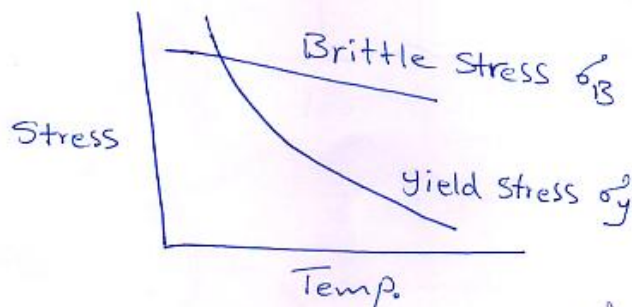 Brittle Stress σB
Stress
yield stress σy
Temp.